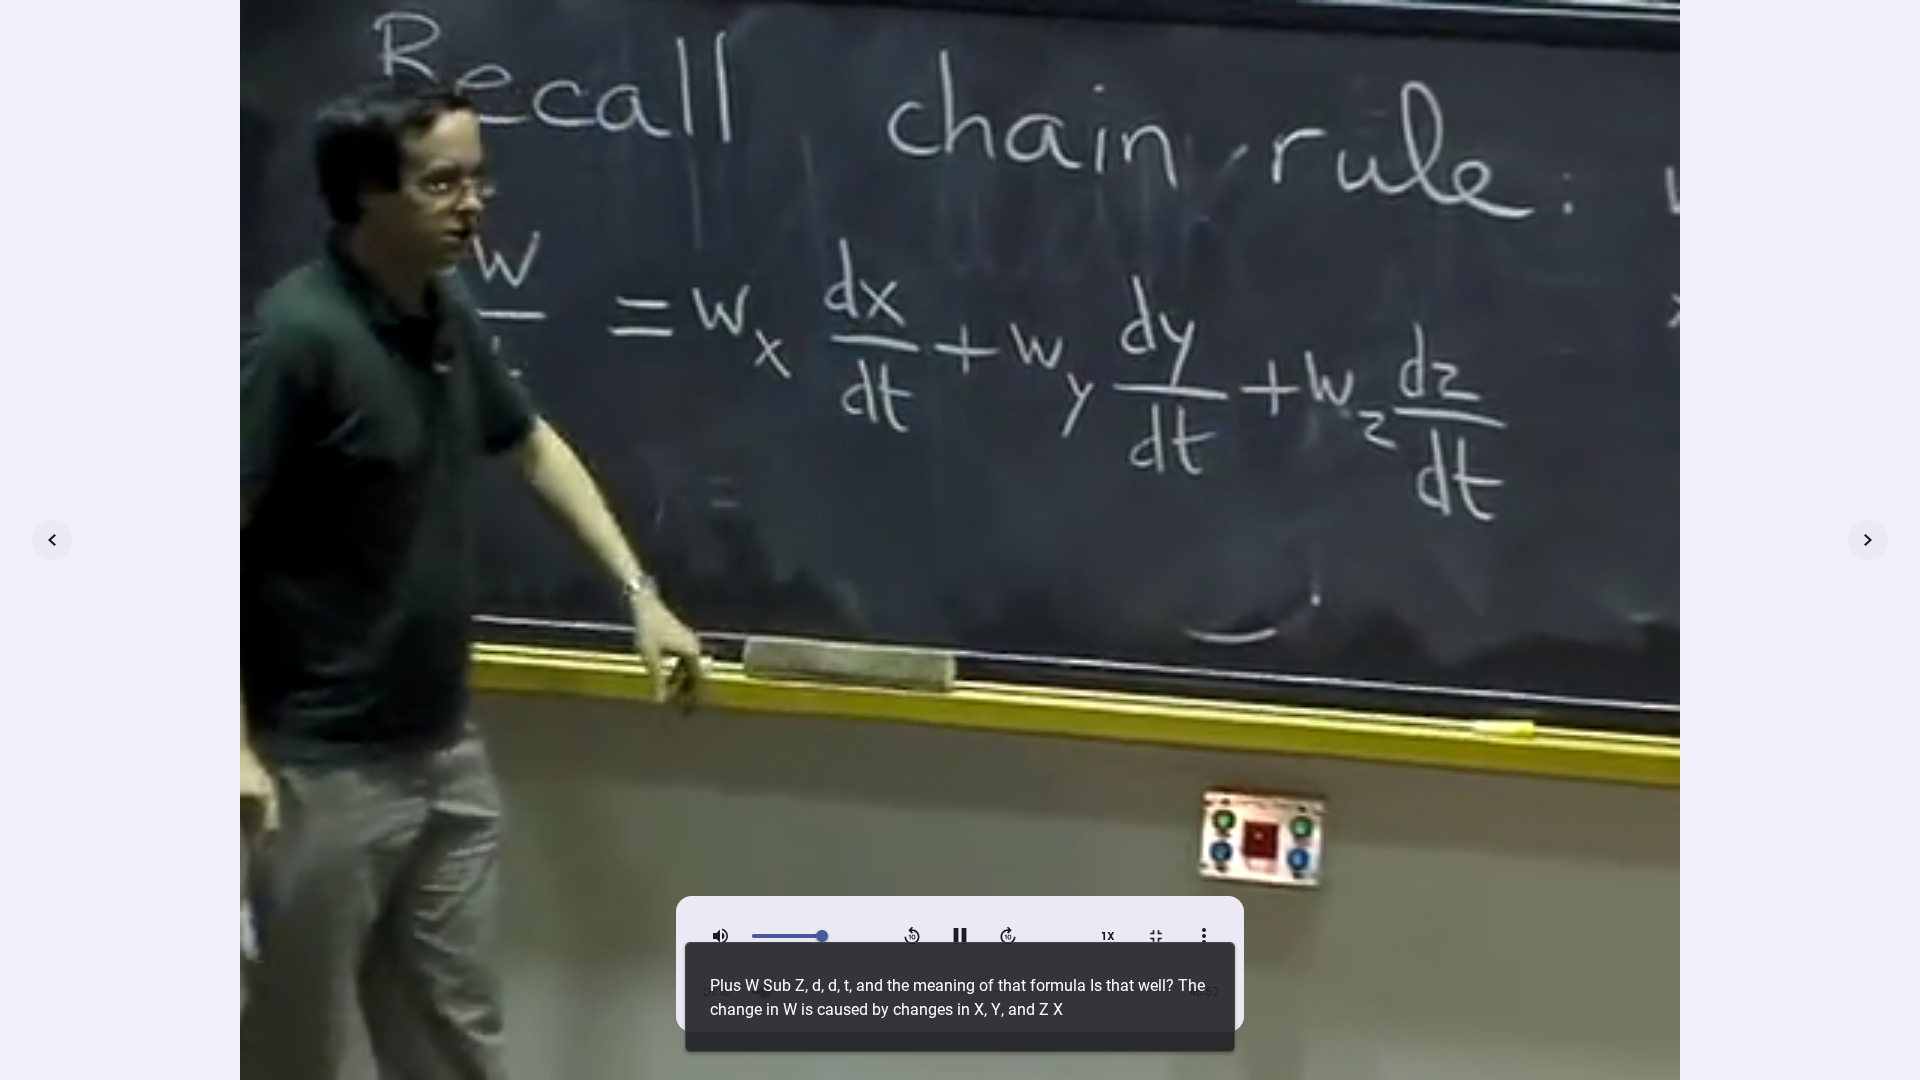 Recall chain rule:
w = w_x dx/dt + w_y dy/dt + w_z dz/dt
10
10
1X
Plus W Sub Z, d, d, t, and the meaning of that formula Is that well? The
change in W is caused by changes in X, Y, and Z X